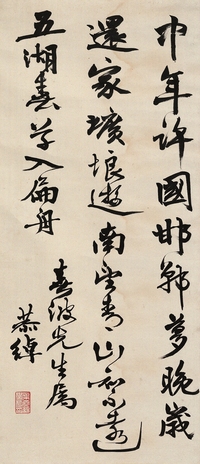 中年許國邯鄲夢晚歲
還家壙埌遊南望青山知不遠
五湖春草入偏舟
春波先生属
恭綽